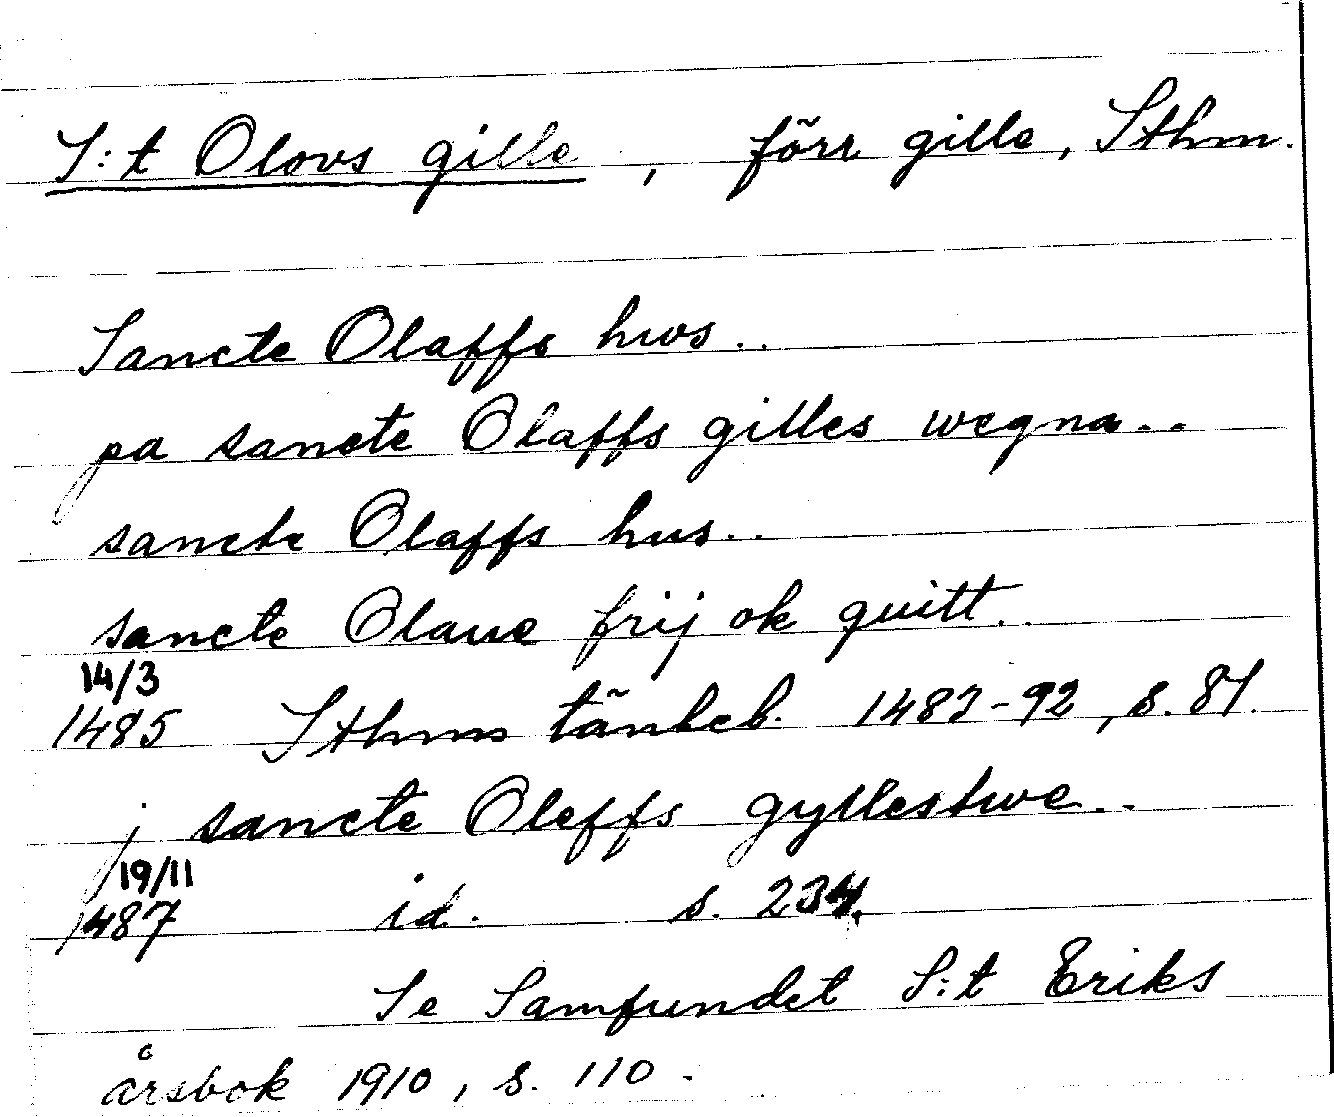 S:t Olovs gille, förr gille, Sthm.
Sancte Olaffs hws..
pa sancte Olaffs gilles wegna..
sancte Olaffs hus..
sancte Olaue frij ok quitt..
14/3
1485 Sthms tänkeb. 1483-92, s. 81.
j sancte Oleffs gyllestwe..
19/11
1487 id. s. 234.
Se Samfundet S:t Eriks
årsbok 1910, s. 110.